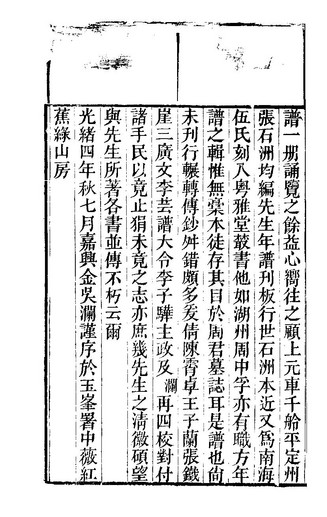 譜一册誦覽之餘益心嚮往之顧上元車千舲平定州
張石洲均編先生年譜刊板行世石洲本近又爲南海
伍氏刻入粤雅堂叢書他如湖州周中孚亦有職方年
譜之輯惟無槀本徒存其目於周君墓誌耳是譜也尙
未刊行輾轉傳鈔舛錯頗多爰倩陳霄卓王子蘭張鐵
崖三廣文李芸譜大令李子驊主政及瀾再四校對付
諸手民以竟止狷未竟之志亦庶幾先生之淸徽碩望
與先生所著各書並傳不朽云爾
光緖四年秋七月嘉興金吳瀾謹序於玉峯署中薇紅
蕉綠山房